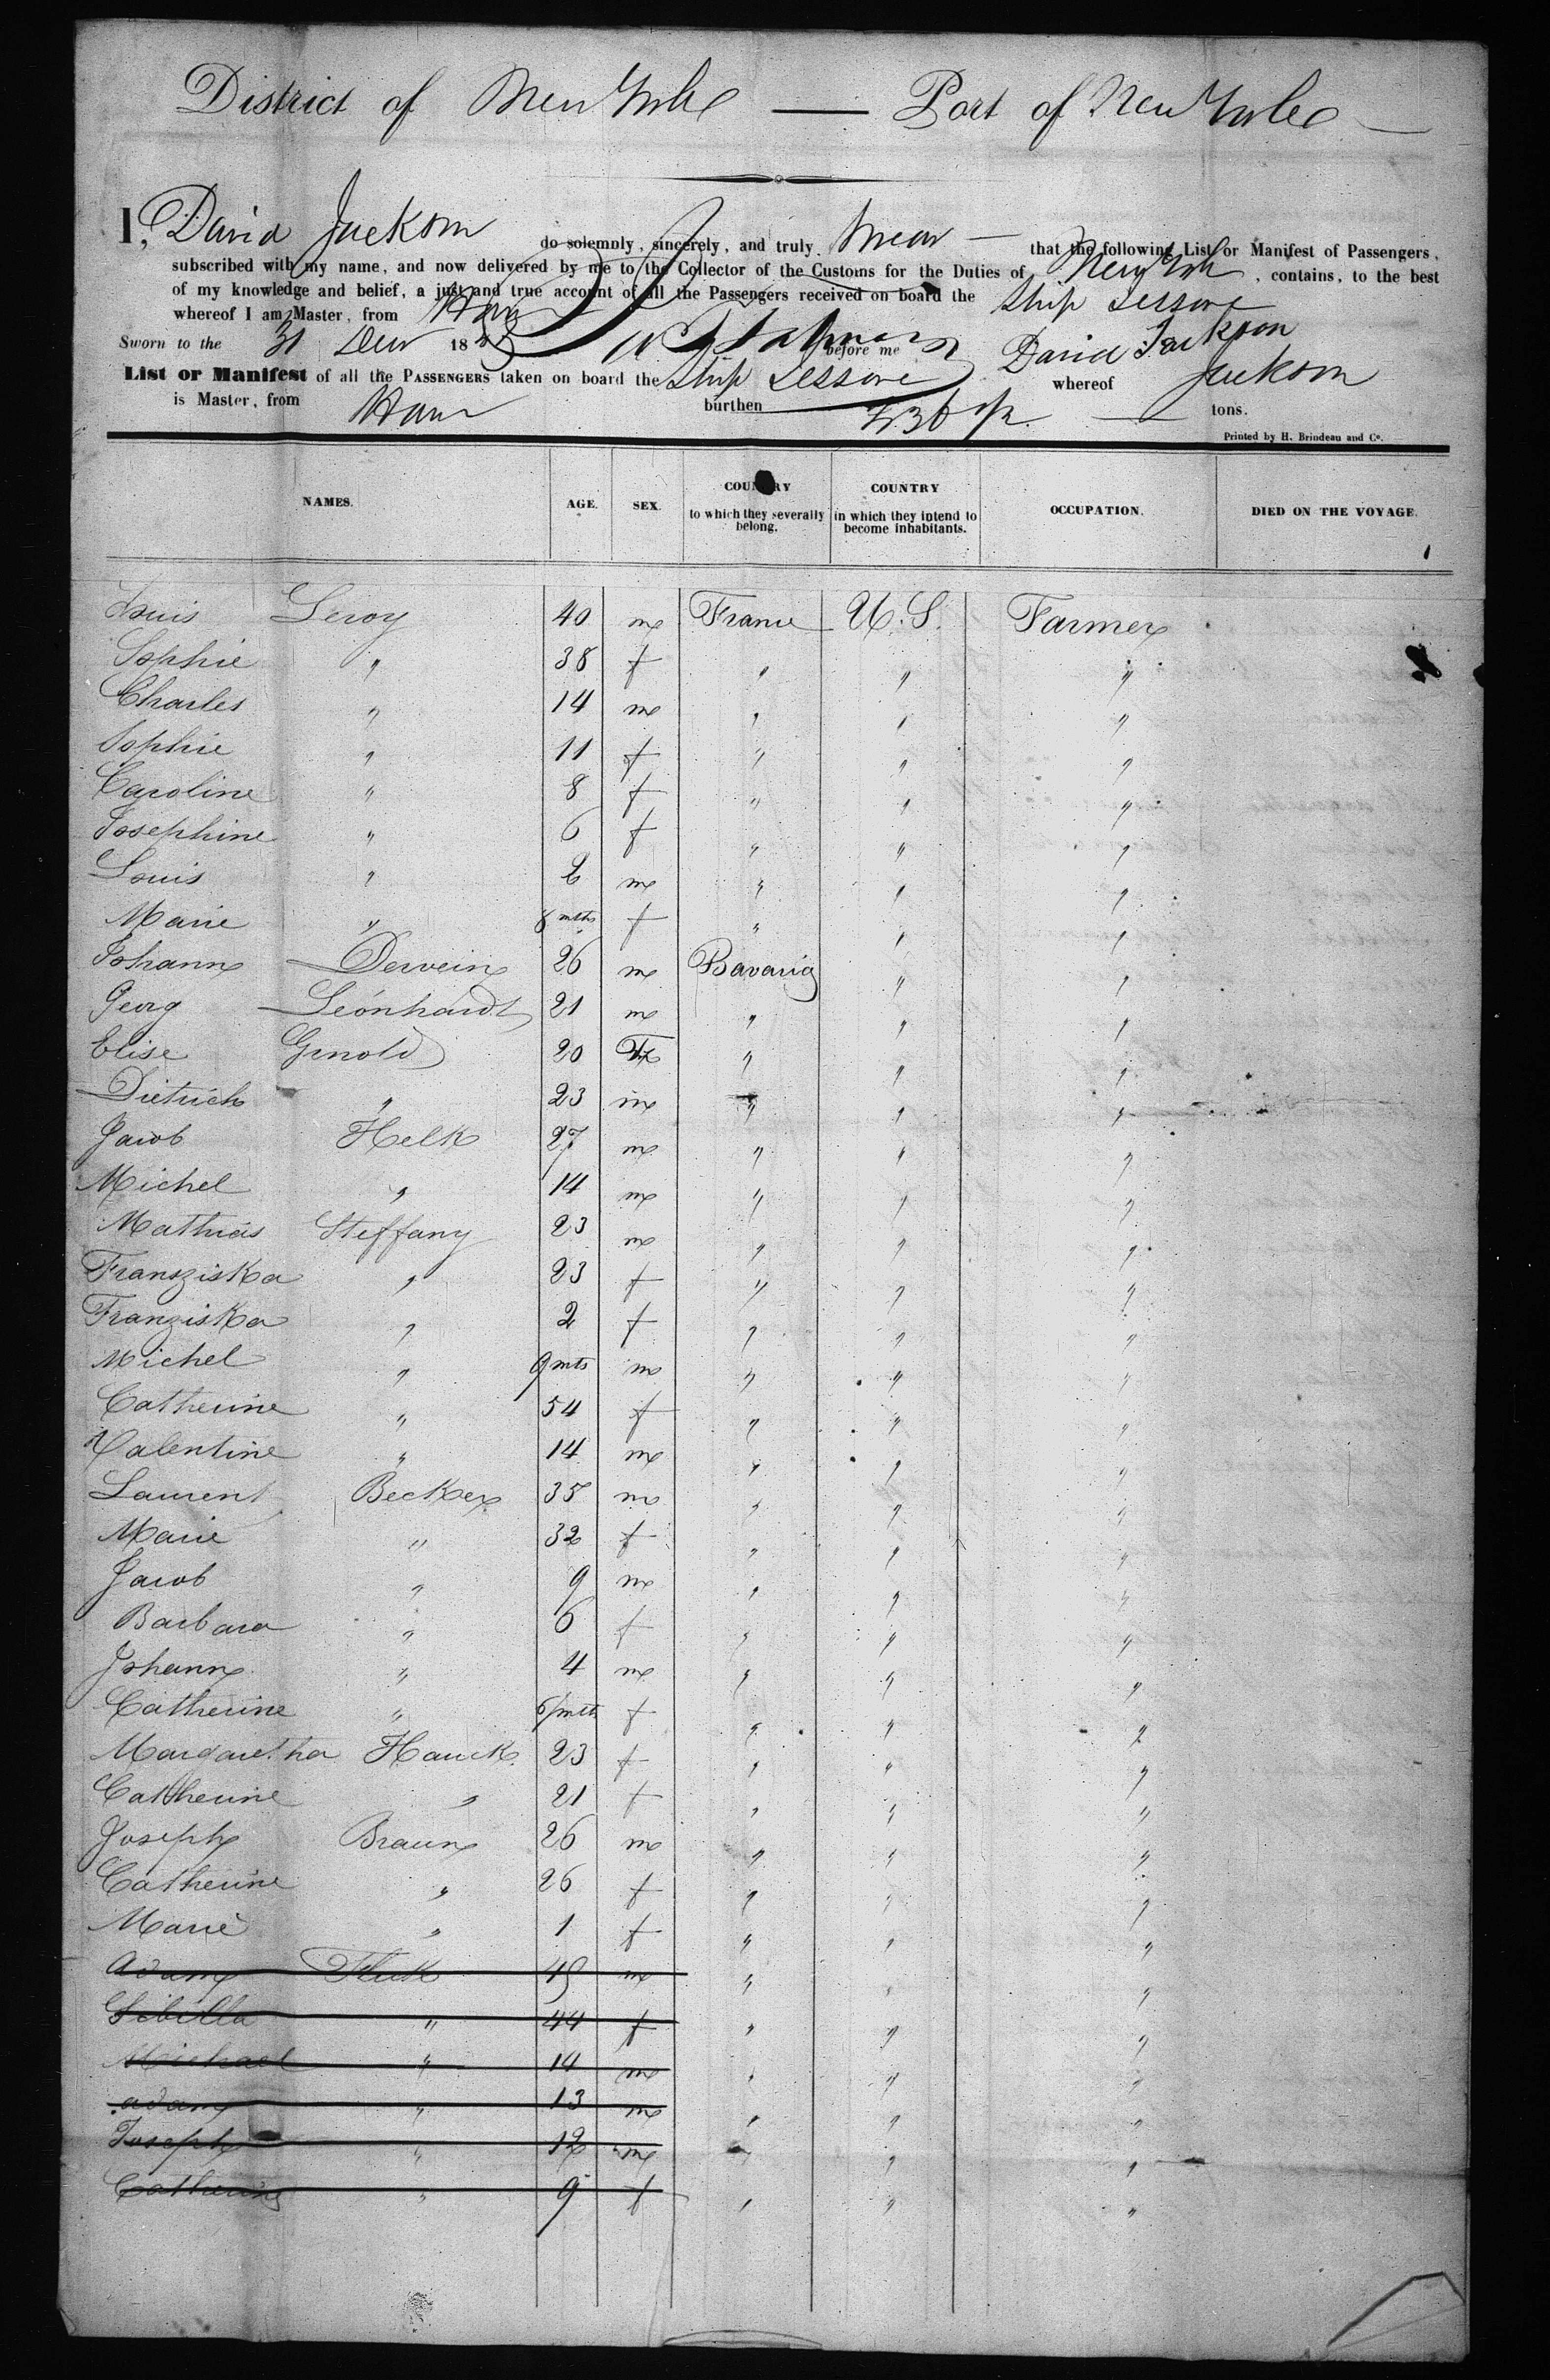 District of New York — Port of New York —
I, David Jackson do solemnly, sincerely, and truly swear — that the following List or Manifest of Passengers,
subscribed with my name, and now delivered by me to the Collector of the Customs for the Duties of New York, contains, to the best
of my knowledge and belief, a just and true account of all the Passengers received on board the Ship
whereof I am Master, from Havre
Sworn to the 31 Decr 18 before me David Jackson
List or Manifest of all the PASSENGERS taken on board the Ship whereof Jackson
is Master, from Havre burthen tons.
Printed by H. Brindeau and Co.
NAMES. AGE. SEX. COUNTRY to which they severally belong. COUNTRY in which they intend to become inhabitants. OCCUPATION. DIED ON THE VOYAGE.
Louis Leroy 40 m France U.S. Farmer
Sophie " 38 f " " "
Charles " 14 m " " "
Sophie " 11 f " " "
Caroline " 8 f " " "
Josephine " 6 f " " "
Louis " m " " "
Marie " 8 mths f " " "
Johann Derwein 26 m Bavaria " "
Georg Leonhardt 21 m " " "
Elise 20 " " "
Dietrich " 23 m " " "
Jacob Helk 27 m " " "
Michel " 14 m " " "
Mathias Steffany 23 m " " "
Fransziska " 23 f " " "
Franziska " 2 f " " "
Michel " 9 mts m " " "
Catherine " 54 f " " "
Valentine " 14 m " " "
Laurent Becker 35 m " " "
Marie " 32 f " " "
Jacob " 9 m " " "
Barbara " 6 f " " "
Johann " 4 m " " "
Catherine " 6 mth f " " "
Margaretha Hauck 23 f " " "
Catherine " 21 f " " "
Joseph Braun 26 m " " "
Catherine " 26 f " " "
Marie " 1 f " " "
Adam 45 m " " "
Sibilla " 44 f " " "
Michael " 14 m " " "
Adam " 13 m " " "
Joseph " 12 m " " "
Catherine " 9 f " " "